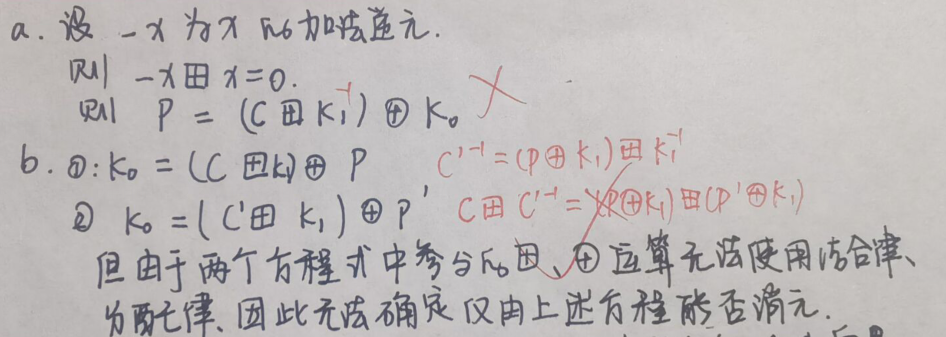 a. 设 -x 为 x 的加法逆元.
则 -x⊞x=0.
则 P = (C ⊞ K₁⁻¹) ⊕ K₀ ×
b. ①: K₀ = (C ⊞K₁)⊕ P C'⁻¹=(P⊕K₁)⊞K₁⁻¹
② K₀ = (C'⊞ K₁) ⊕ P' C⊞C'⁻¹=(P⊕K₁)⊞(P'⊕K₁)
但由于两个方程式中参与的⊞、⊕运算无法使用结合律、
分配律、因此无法确定仅由上述方程能否消元.